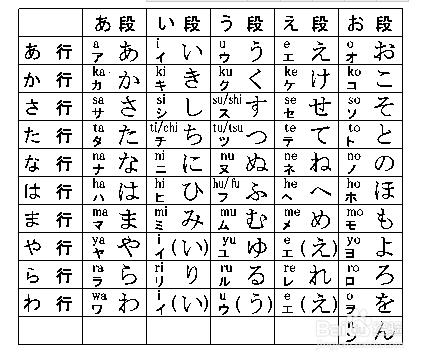 あ 段 い 段 う 段 え 段 お 段
あ 行 a ア あ i イ い u ウ う e エ え o オ お
か 行 ka カ か ki キ き ku ク く ke ケ け ko コ こ
さ 行 sa サ さ si シ し su/shi ス す se セ せ so ソ そ
た 行 ta タ た ti/chi チ ち tu/tsu ツ つ te テ て to ト と
な 行 na ナ な ni ニ に nu ヌ ぬ ne ネ ね no ノ の
は 行 ha ハ は hi ヒ ひ hu/fu フ ふ he ヘ へ ho ホ ほ
ま 行 ma マ ま mi ミ み mu ム む me メ め mo モ も
や 行 ya ヤ や i イ (い) yu ユ ゆ e エ (え) yo ヨ よ
ら 行 ra ラ ら ri リ り ru ル る re レ れ ro ロ ろ
わ 行 wa ワ わ i イ (い) u ウ (う) e エ (え) o ヲ を
ん